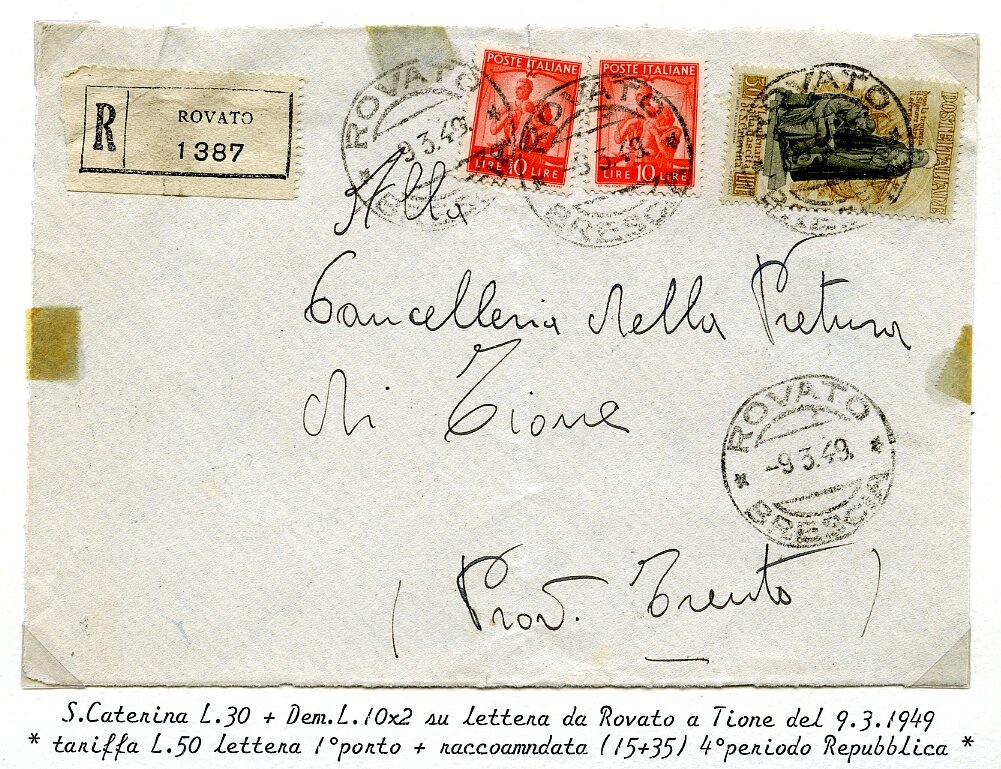 R ROVATO
1387
POSTE ITALIANE
LIRE 10 LIRE
POSTE ITALIANE
LIRE 10 LIRE
POSTE ITALIANE
ROVATO
-9.3.49.
ROVATO
-9.3.49.
BRESCIA
ROVATO
Alla
Cancelleria della Pretura
di Tione
ROVATO
-9.3.49.
BRESCIA
( Prov. Trento )
S.Caterina L.30 + Dem.L.10x2 su lettera da Rovato a Tione del 9.3.1949
* tariffa L.50 lettera 1°porto + raccoamndata (15+35) 4°periodo Repubblica *